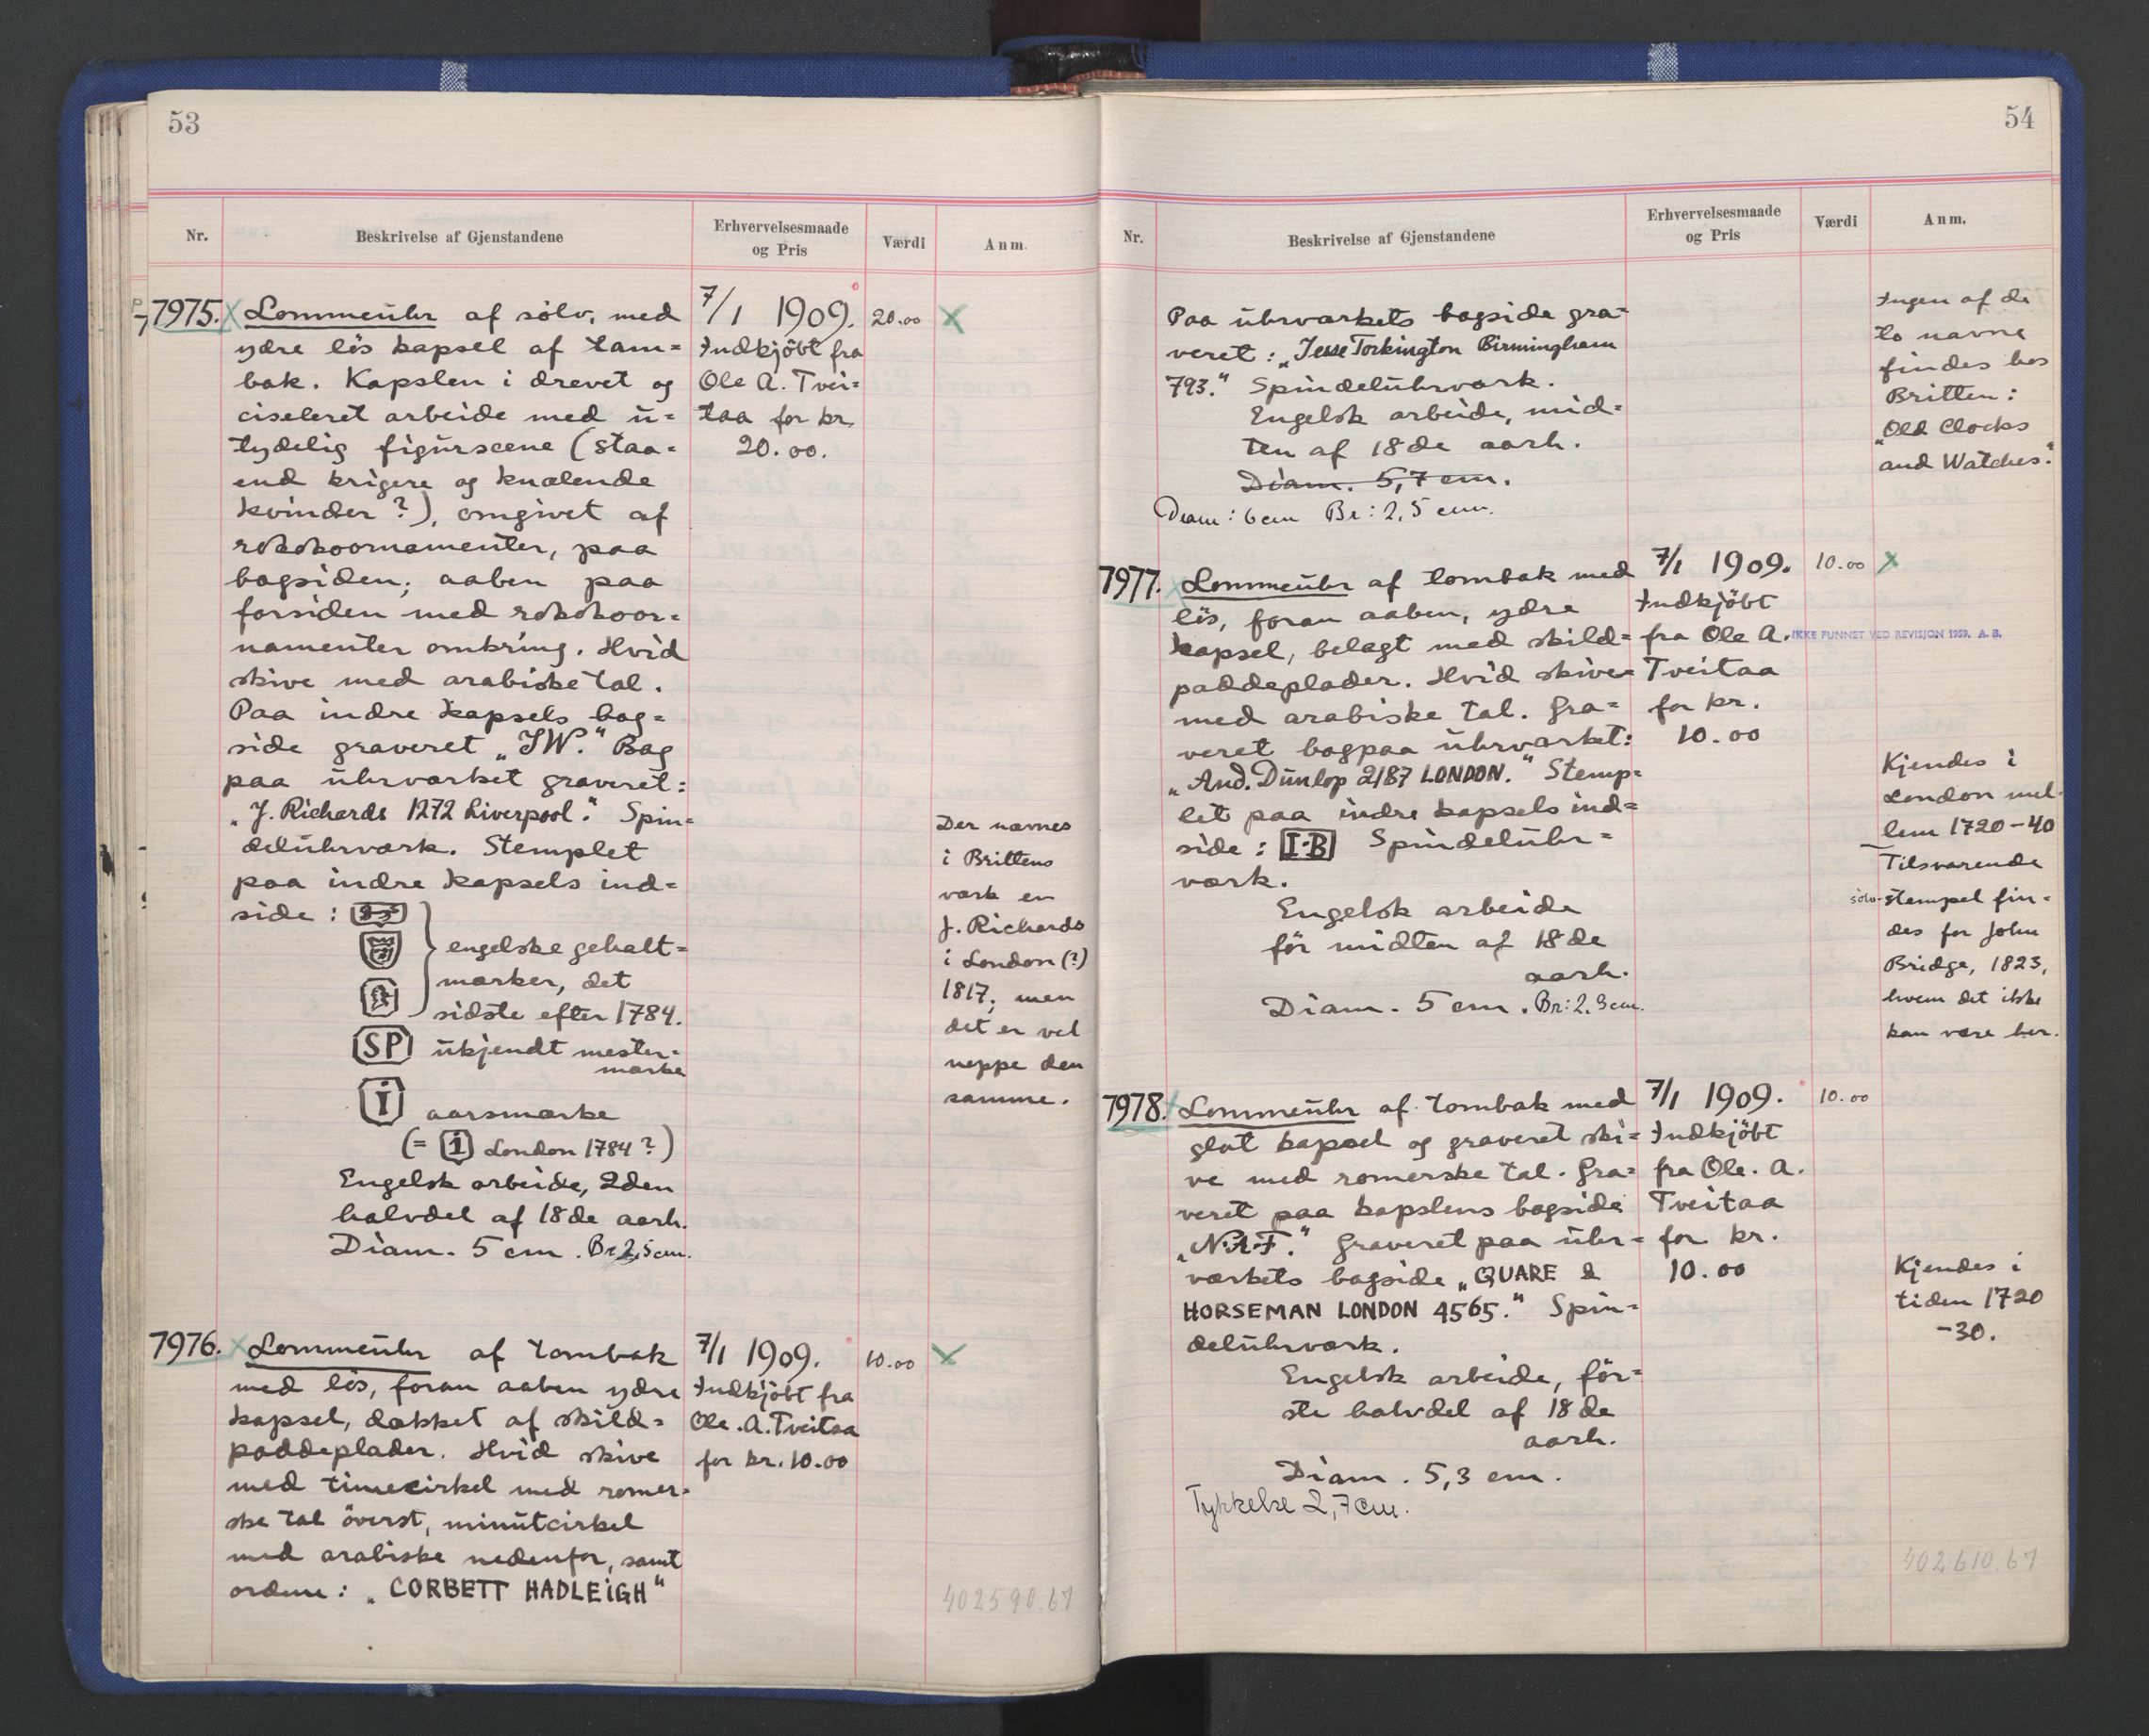 53
Nr.
Beskrivelse af Gjenstandene
Erhvervelsesmaade
og Pris
Værdi
Anm.
7975.
Lommeuhr af sölv, med
ydre lös kapsel af tam=
bak. Kapslen i drevet og
ciseleret arbeide med u=
tydelig figurscene (staa=
end krigere og knælende
kvinder?), omgivet af
rokokoornamenter, paa
bagsiden; aaben paa
forsiden med rokokoor=
namenter omkring. Hvid
skive med arabiske tal.
Paa indre kapsels bag=
side graveret „IW." Bag
paa uhrværket graveret:
„J. Richards 1272 Liverpool". Spin=
deluhrværk. Stemplet
paa indre kapsels ind=
side:
engelske gehalt=
mærker, det
sidste efter 1784.
SP ukjendt mester=
mærke
I aarsmærke
(= i London 1784?)
Engelsk arbeide, 2den
halvdel af 18de aarh.
Diam. 5 cm. Br 2,5 cm.
7/1 1909.
Indkjöbt fra
Ole A. Tvei=
taa for kr.
20.00.
20.00
X
Der nævnes
i Brittens
værk en
J. Richards
i London (?)
1817, men
det er vel
neppe den
samme.
7976.
Lommeuhr af tombak
med lös, foran aaben ydre
kapsel, dækket af skild=
paddeplader. Hvid skive
med timecirkel med romer=
ske tal överst, minutcirkel
med arabiske nedenfor, samt
ordene: „CORBETT HADLEIGH"
7/1 1909.
Indkjöbt fra
Ole. A. Tveitaa
for kr. 10.00
10.00
X
402590.67
54
Nr.
Beskrivelse af Gjenstandene
Erhvervelsesmaade
og Pris
Værdi
Anm.
Paa uhrværkets bagside gra=
veret: „Jesse Torkington Birmingham
793." Spindeluhrværk.
Engelsk arbeide, mid=
ten af 18de aarh.
Diam. 5,7 cm.
Diam: 6cm Br: 2,5 cm.
Ingen af de
to navne
findes hos
Britten:
„Old Clocks
and Watches."
7977.
Lommeuhr af tombak med
lös, foran aaben, ydre
kapsel, belagt med skild=
paddeplader. Hvid skive
med arabiske tal. Gra=
veret bagpaa uhrværket:
„And. Dunlop 2187 LONDON." Stemp=
let paa indre kapsels ind=
side: I·B Spindeluhr=
værk.
Engelsk arbeide
för midten af 18de
aarh.
Diam. 5 cm. Br: 2.3cm.
7/1 1909.
Indkjöbt
fra Ole A.
Tveitaa
for kr.
10.00
10.00
X
IKKE FUNNET VED REVISJON 1959. A. B.
Kjendes i
London mel=
lem 1720-40
Tilsvarende
sølv-stempel fin=
des for John
Bridge, 1823,
hvem det ikke
kan være her.
7978.
Lommeuhr af tombak med
glat kapsel og graveret ski=
ve med romerske tal. Gra=
veret paa kapslens bagside
„N.R.F." Graveret paa uhr=
værkets bagside „QUARE &
HORSEMAN LONDON 4565." Spin=
deluhrværk.
Engelsk arbeide, för=
ste halvdel af 18de
aarh.
Diam. 5,3 cm.
Tykkelse 2,7cm.
7/1 1909.
Indkjöbt
fra Ole. A.
Tveitaa
for kr.
10.00
10.00
Kjendes i
tiden 1720
-30.
402610.67